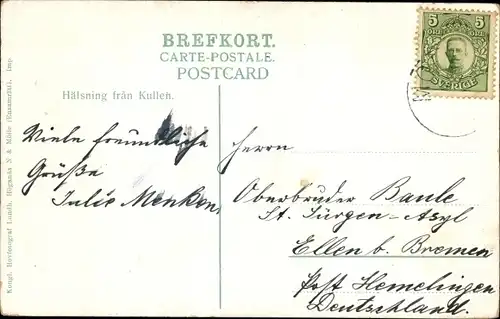 BREFKORT.
CARTE-POSTALE.
POSTCARD
Hälsning från Kullen.
5 5
SVERIGE
Viele freundliche
Grüße
Julie Menken.
Herrn
Oberbruder Baule
St. Jürgen-Asyl
Ellen b. Bremen
Post Hemelingen
Deutschland.
Kongl. Hoffotograf Lundh, Höganäs N & Mölle
Imp.